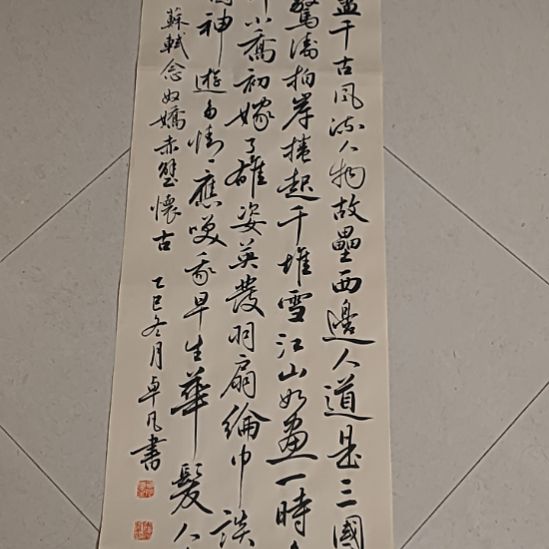 盡千古風流人物故壘西邊人道是三國
驚濤拍岸捲起千堆雪江山如畫一時
小喬初嫁了雄姿英發羽扇綸巾談
神遊多情應笑我早生華髮人
蘇軾念奴嬌赤壁懷古
乙巳冬月卓凡書